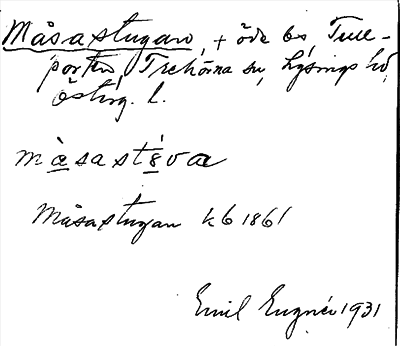 Måsastugan, + öde bs Tune-
porten, Trehörna sn, Lysings hd,
Östig. l.
måsastɵva
Måsastugan kb 1861
Emil Eugnér 1931